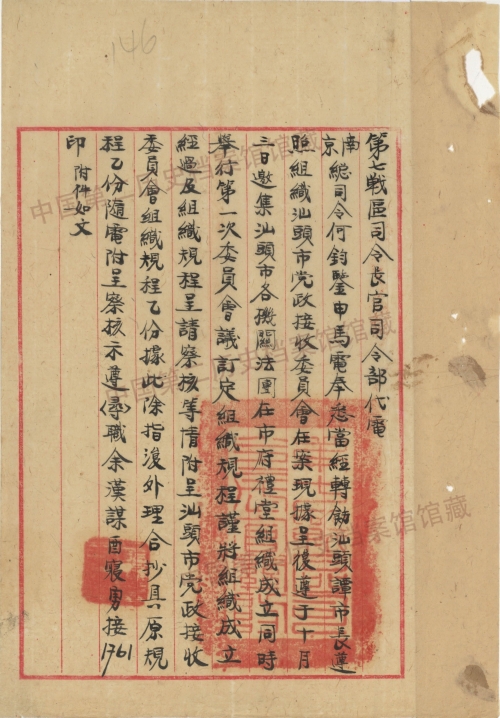 146
第七戰區司令長官司令部代電
南京總司令何鈞鑒申馬電奉悉當經轉飭汕頭譚市長遵
照組織汕頭市党政接收委員會在案現據呈復遵于十月
三日邀集汕頭市各機關法團在市府禮堂組織成立同時
舉行第一次委員會議訂定組織規程謹將組織成立
經過及組織規程呈請察核等情附呈汕頭市党政接收
委員會組織規程乙份據此除指復外理合抄具原規
程乙份隨電附呈察核示遵(尋)職余漢謀酉寢勇接1761
印 附件如文
中国第二历史档案馆馆藏